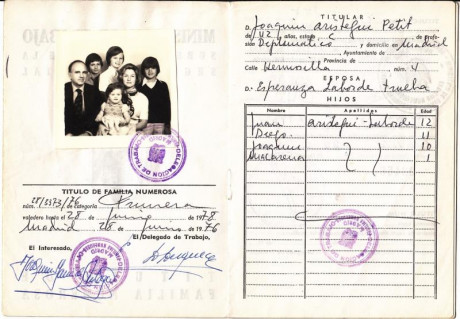 TITULO DE FAMILIA NUMEROSA
núm. 28/5973/76 de categoría Primera
valedero hasta 28 de junio de 1978
Madrid 28 de junio de 1976
El Interesado, El Delegado de Trabajo,
TITULAR
D. Joaquin Aristegui Petit
de 42 años, estado C de profe-
sión Diplomático y domicilio en Madrid
Ayuntamiento de
Provincia de
Calle Hermosilla núm. 4
ESPOSA
D.ª Esperanza Laborde Trucha
HIJOS
Nombre Apellidos Edad
Juan Aristegui-Laborde 12
Diego 11
Joaquin 10
Macarena 1